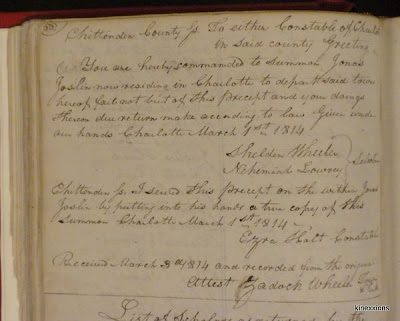 Chittenden County Ss. To either Constable of Charlotte
in said county Greeting
You are hereby commanded to summon Jonas
Joslin now residing in Charlotte to depart said town
hereof fail not but of this precept and your doings
therein due return make according to law Given under
our hands Charlotte March 1st 1814
Sheldon Wheeler
Nehemiah Lowrey
Chittenden Ss I served this precept on the within Jonas
Joslin by putting into his hands a true copy of this
Summon Charlotte March 1st 1814 -
Ezra Holt Constable
Received March 1814 and recorded from the origin
Attest Zadock Wheeler Town
List of Scholars
kinexxions